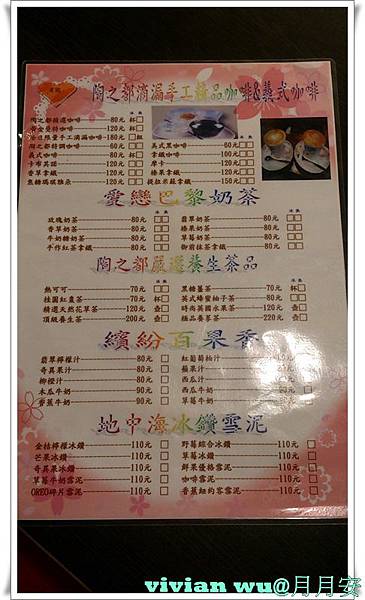 陶之都滴漏手工精品咖啡&義式咖啡
冰 熱
陶之都精選咖啡 80元 杯
黃金曼特咖啡 120元 杯
美式黑咖啡 60元
陶之都特調咖啡 60元
拿鐵咖啡 100元
義式咖啡 80元 杯
摩卡 120元
卡布其諾 120元
榛果拿鐵 120元
香草拿鐵 120元
提拉米蘇拿鐵 150元
焦糖瑪琪雅朵 120元
愛戀巴黎奶茶
冰 熱
玫瑰奶茶 80元
翡翠奶茶 80元
香草奶茶 80元
榛果奶茶 80元
牛奶糖奶茶 80元
草莓奶茶 80元
手作紅茶拿鐵 90元
御前抹茶拿鐵 90元
陶之都嚴選養生茶品
冰 熱
熱可可 70元 杯
黑糖薑茶 70元 杯
桂圓紅棗茶 70元 杯
英式蜂蜜柚子茶 80元
精選天然花草茶 200元 壺
時尚英國水果茶 220元 壺
頂級養生茶 200元
極品養蔘茶 220元
繽紛百果香
翡翠檸檬汁 80元
紅葡萄柚汁 80元
奇異果汁 80元
蘋果汁 80元
柳橙汁 80元
西瓜汁 80元
木瓜牛奶 90元
西瓜牛奶 90元
香蕉牛奶 90元
草莓牛奶 90元
地中海冰鑽雪泥
金桔檸檬冰鑽 110元
野莓綜合冰鑽 110元
芒果冰鑽 110元
草莓冰鑽 110元
奇異果冰鑽 110元
鮮果優格雪泥 110元
草莓牛奶雪泥 110元
咖啡雪泥 110元
OREO碎片雪泥 110元
香蕉紐約客雪泥 110元
vivian wu@月月安